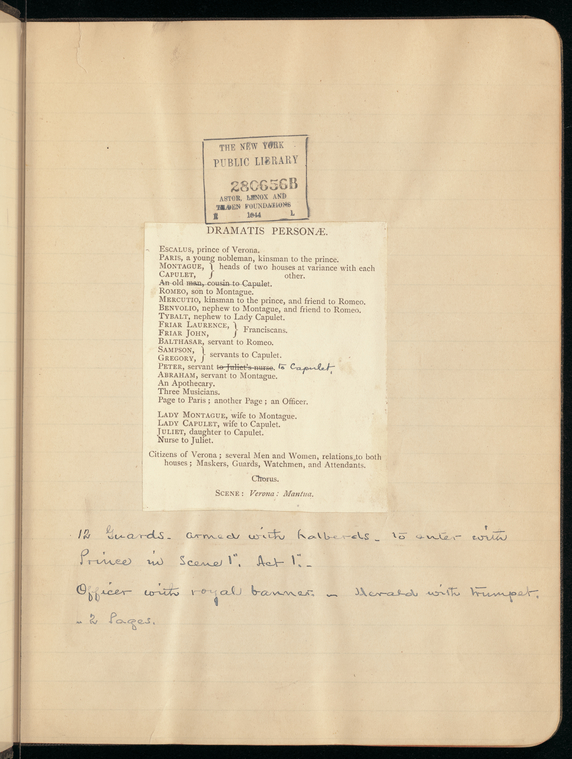 THE NEW YORK
PUBLIC LIBRARY
280656B
ASTOR, LENOX AND
TILDEN FOUNDATIONS
R 1944 L
DRAMATIS PERSONÆ.
ESCALUS, prince of Verona.
PARIS, a young nobleman, kinsman to the prince.
MONTAGUE, } heads of two houses at variance with each
CAPULET, } other.
An old man, cousin to Capulet.
ROMEO, son to Montague.
MERCUTIO, kinsman to the prince, and friend to Romeo.
BENVOLIO, nephew to Montague, and friend to Romeo.
TYBALT, nephew to Lady Capulet.
FRIAR LAURENCE, } Franciscans.
FRIAR JOHN, }
BALTHASAR, servant to Romeo.
SAMPSON, } servants to Capulet.
GREGORY, }
PETER, servant to Juliet's nurse. to Capulet.
ABRAHAM, servant to Montague.
An Apothecary.
Three Musicians.
Page to Paris; another Page; an Officer.
LADY MONTAGUE, wife to Montague.
LADY CAPULET, wife to Capulet.
JULIET, daughter to Capulet.
Nurse to Juliet.
Citizens of Verona; several Men and Women, relations to both
houses; Maskers, Guards, Watchmen, and Attendants.
Chorus.
SCENE: Verona: Mantua.
12 Guards - armed with halberds - to enter with
Prince in Scene 1st. Act 1st. -
Officer with royal banner - Herald with trumpet.
- 2 Pages.